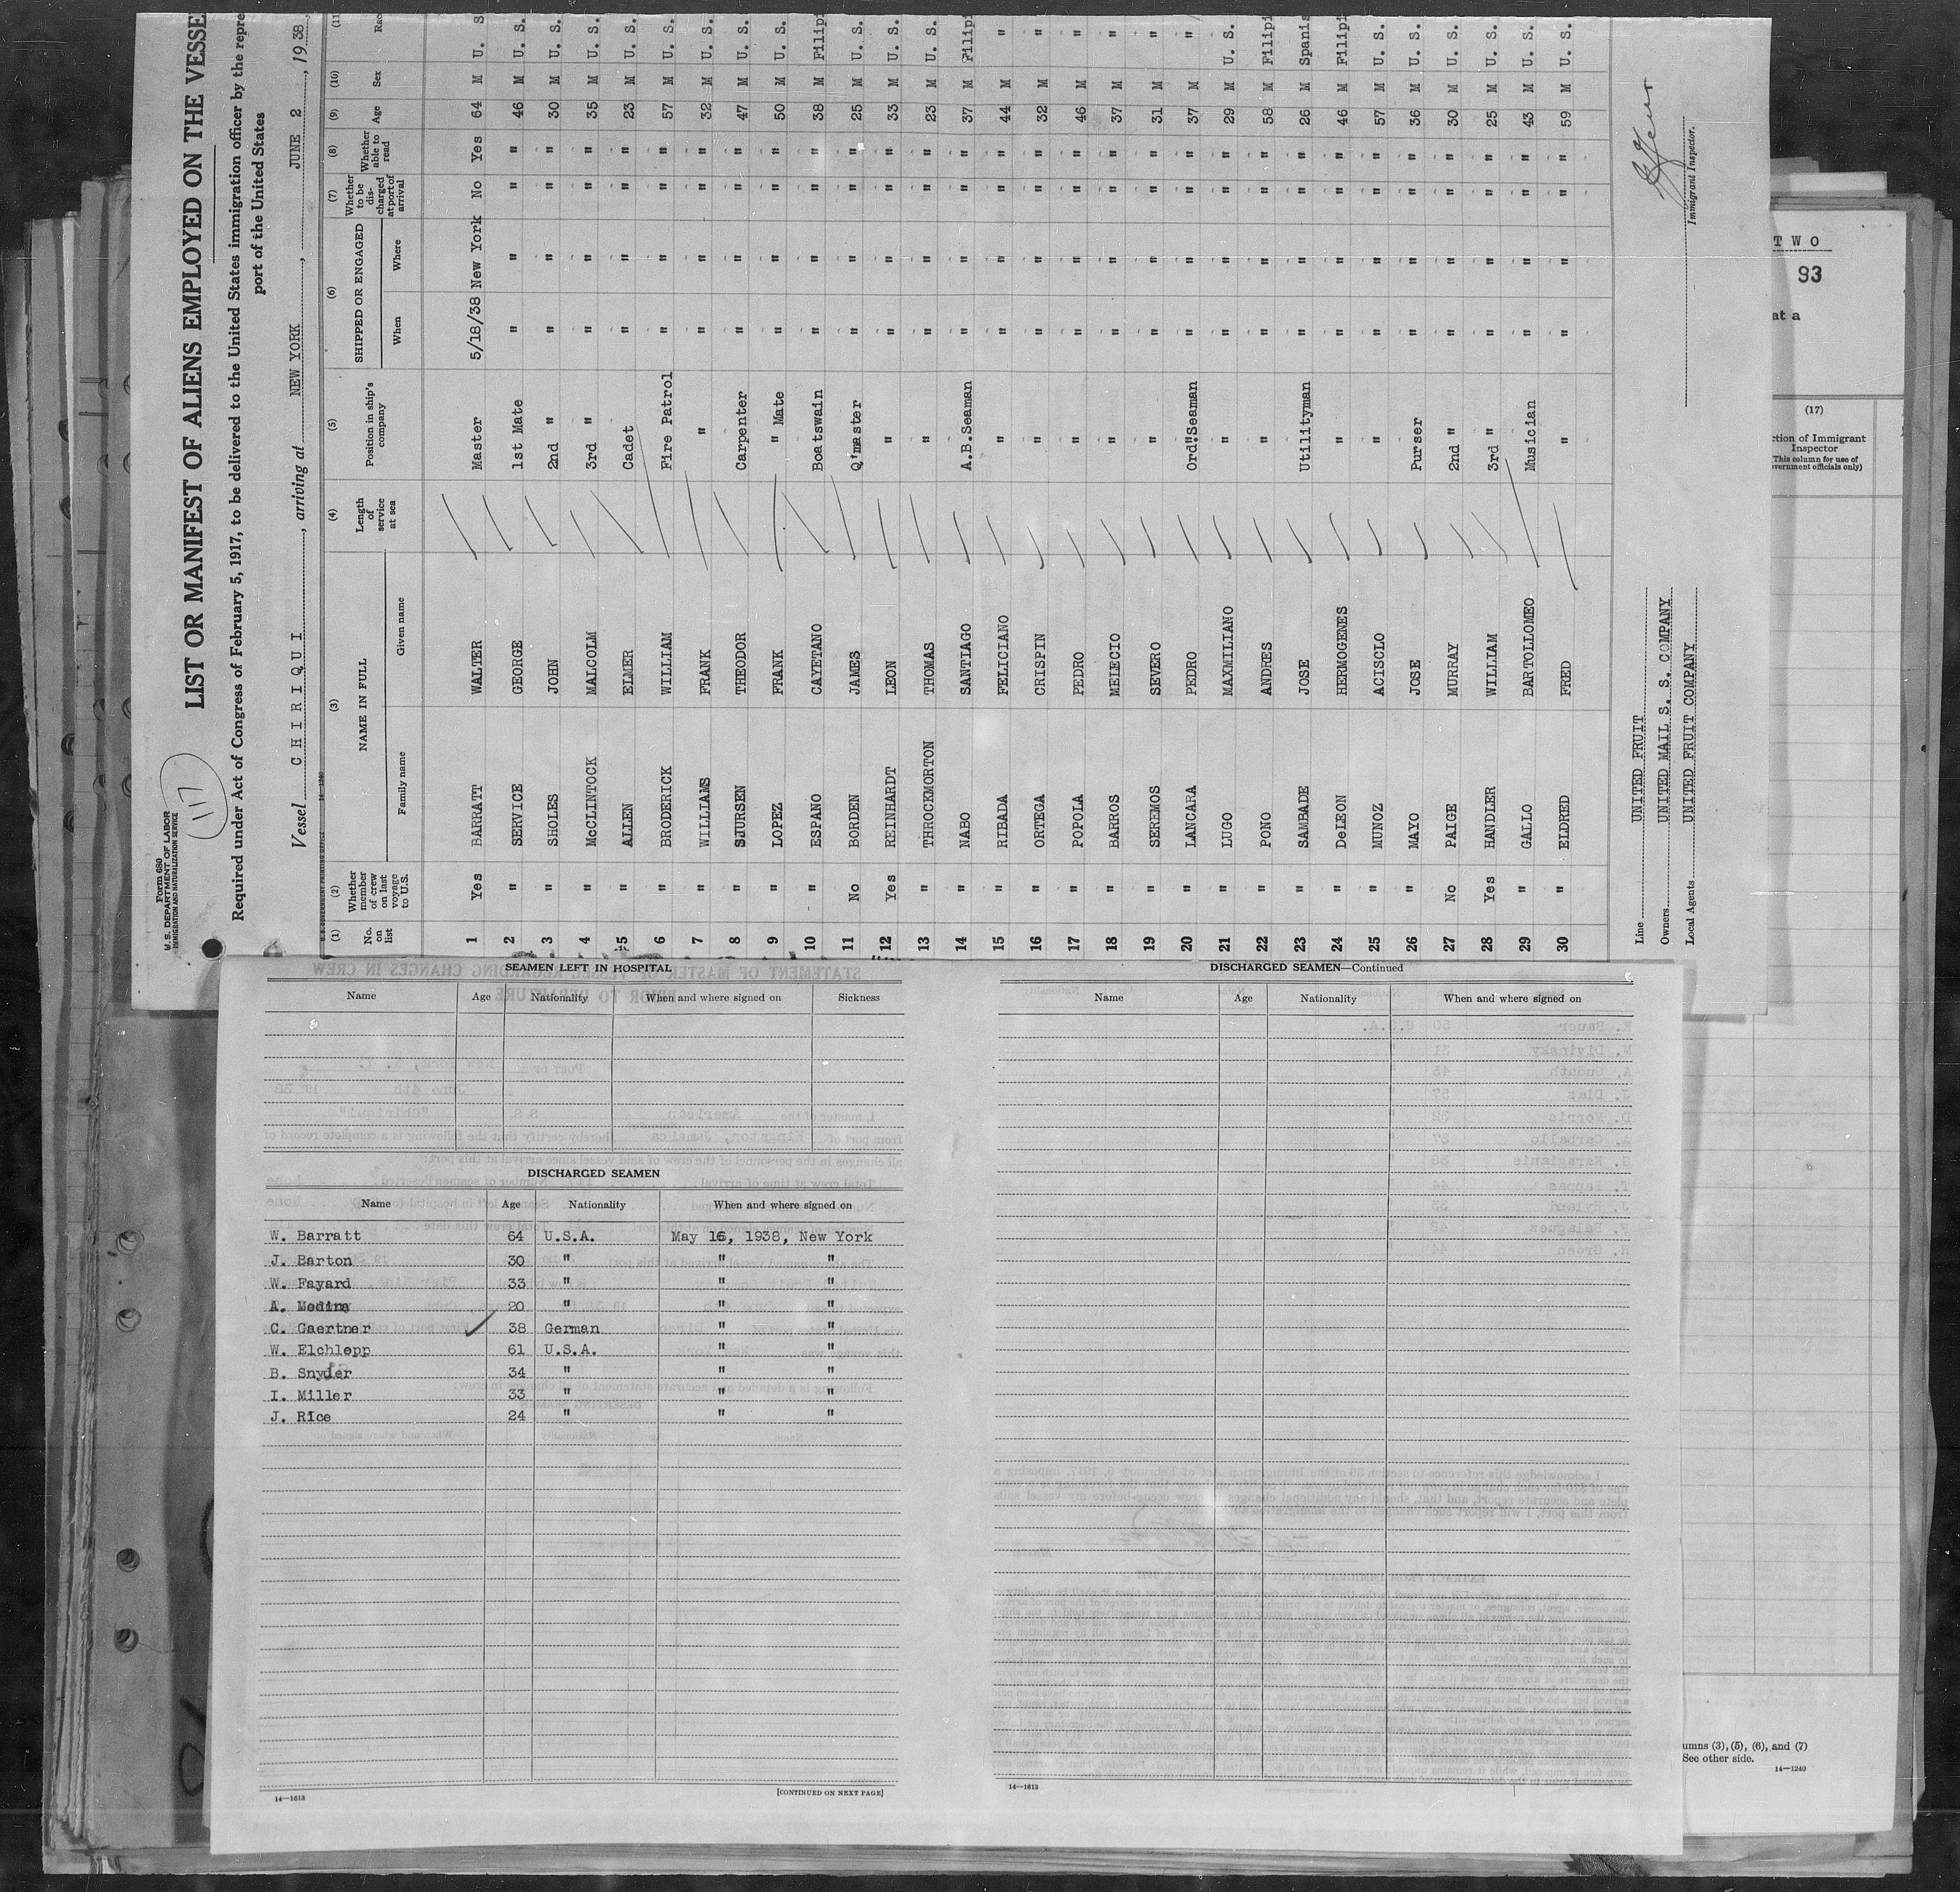 Form 680
U. S. DEPARTMENT OF LABOR
IMMIGRATION AND NATURALIZATION SERVICE
117
LIST OR MANIFEST OF ALIENS EMPLOYED ON THE VESSE
Required under Act of Congress of February 5, 1917, to be delivered to the United States immigration officer by the repre
port of the United States
Vessel CHIRIQUI, arriving at NEW YORK, JUNE 2, 1938,
(1) No. on list (2) Whether member of crew on last voyage to U.S. (3) NAME IN FULL Family name Given name (4) Length of service at sea (5) Position in ship's company (6) SHIPPED OR ENGAGED When Where (7) Whether to be discharged at port of arrival (8) Whether able to read (9) Age (10) Sex (11 Rac
1 Yes BARRATT WALTER Master 5/18/38 New York No Yes 64 M U. S
2 " SERVICE GEORGE 1st Mate " " " " 46 M U. S.
3 " SHOLES JOHN 2nd " " " " " 30 M U. S.
4 " McCLINTOCK MALCOLM 3rd " " " " " 35 M U. S.
5 " ALLEN ELMER Cadet " " " " 23 M U. S.
6 " BRODERICK WILLIAM Fire Patrol " " " " 57 M U. S.
7 " WILLIAMS FRANK " " " " " 32 M U. S.
8 " SJURSEN THEODOR Carpenter " " " " 47 M U. S.
9 " LOPEZ FRANK " Mate " " " " 50 M U. S.
10 " ESPANO CAYETANO Boatswain " " " " 38 M Filipi
11 No BORDEN JAMES Q'master " " " " 25 M U. S.
12 Yes REINHARDT LEON " " " " " 33 M U. S.
13 " THROCKMORTON THOMAS " " " " " 23 M U. S.
14 " NABO SANTIAGO A.B.Seaman " " " " 37 M Filipi
15 " RIBADA FELICIANO " " " " " 44 M "
16 " ORTEGA CRISPIN " " " " " 32 M "
17 " POPOLA PEDRO " " " " " 46 M "
18 " BARROS MELECIO " " " " " 37 M "
19 " SEREMOS SEVERO " " " " " 31 M "
20 " LANCARA PEDRO Ord"Seaman " " " " 37 M "
21 " LUGO MAXMILIANO " " " " " 29 M U. S.
22 " PONO ANDRES " " " " " 58 M Filipi
23 " SAMBADE JOSE Utilityman " " " " 26 M Spanis
24 " DeLEON HERMOGENES " " " " " 46 M Filipi
25 " MUNOZ ACISCLO " " " " " 57 M U. S.
26 " MAYO JOSE Purser " " " " 36 M U. S.
27 No PAIGE MURRAY 2nd " " " " " 30 M U. S.
28 Yes HANDLER WILLIAM 3rd " " " " " 25 M U. S.
29 " GALLO BARTOLLOMEO Musician " " " " 43 M U. S.
30 " ELDRED FRED " " " " " 59 M U. S.
Line UNITED FRUIT
Owners UNITED MAIL S. S. COMPANY
Local Agents UNITED FRUIT COMPANY
Immigrant Inspector.
TWO
93
at a
(17)
ction of Immigrant
Inspector
(This column for use of
vernment officials only)
umns (3), (5), (6), and (7)
See other side.
14—1240
SEAMEN LEFT IN HOSPITAL
Name Age Nationality When and where signed on Sickness
DISCHARGED SEAMEN
Name Age Nationality When and where signed on
W. Barratt 64 U.S.A. May 16, 1938, New York
J. Barton 30 " " "
W. Fayard 33 " " "
A. Medina 20 " " "
C. Gaertner 38 German " "
W. Elchlepp 61 U.S.A. " "
B. Snyder 34 " " "
I. Miller 33 " " "
J. Rice 24 " " "
14—1613
[CONTINUED ON NEXT PAGE]
DISCHARGED SEAMEN—Continued
Name Age Nationality When and where signed on
14—1613